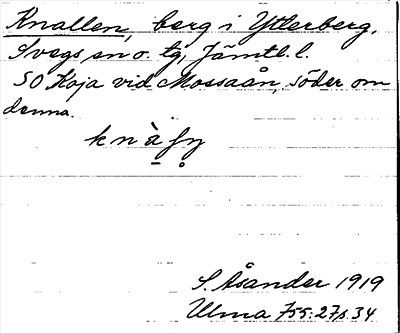 Knallen, berg i Ytterberg,
Svegs sn o. tg, Jämtl. l.
SO Koja vid Mossaån, söder om
denna.
S. Åsander 1919
Ulma 755:27, s. 34